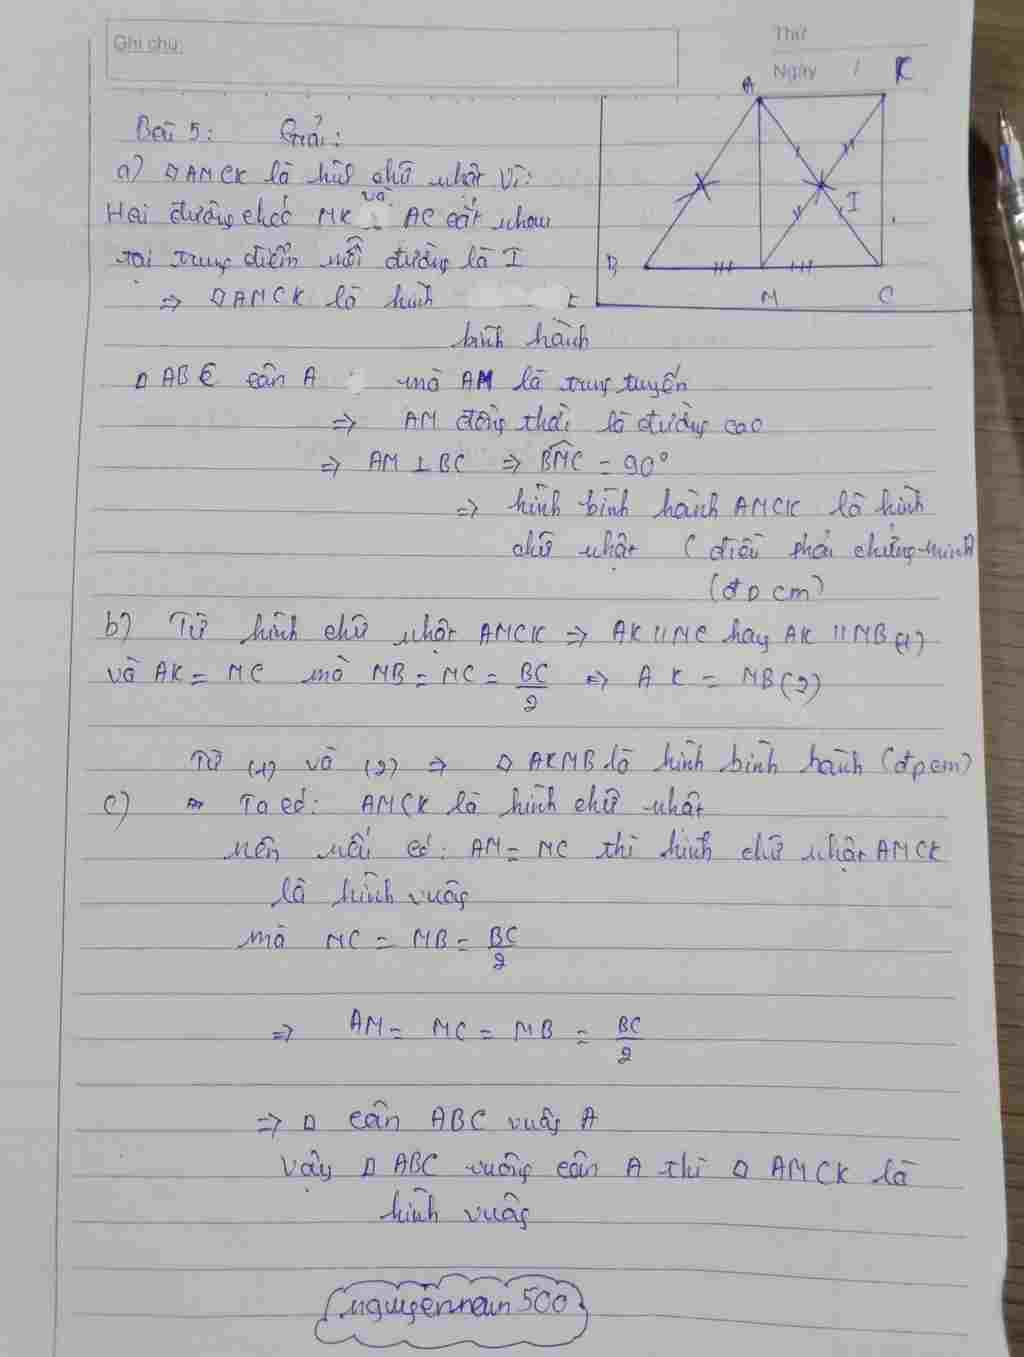 Ghi chú:
Thứ
Ngày /
A K
I
B M C
Bài 5: Giải:
a) □AMCK là hình chữ nhật vì:
Hai đường chéo MK và AC cắt nhau
tại trung điểm mỗi đường là I
=> □AMCK là hình
bình hành
△ABC cân A mà AM là trung tuyến
=> AM đồng thời là đường cao
=> AM ⊥ BC => BMC = 90°
=> hình bình hành AMCK là hình
chữ nhật (điều phải chứng minh)
(đpcm)
b) Từ hình chữ nhật AMCK => AK // MC hay AK // MB (1)
và AK = MC mà MB = MC = BC/2 => AK = MB (2)
Từ (1) và (2) => □AKMB là hình bình hành (đpcm)
c) Ta có: AMCK là hình chữ nhật
nên nếu có: AM = MC thì hình chữ nhật AMCK
là hình vuông
mà MC = MB = BC/2
=> AM = MC = MB = BC/2
=> △ cân ABC vuông A
Vậy △ABC vuông cân A thì □AMCK là
hình vuông
500